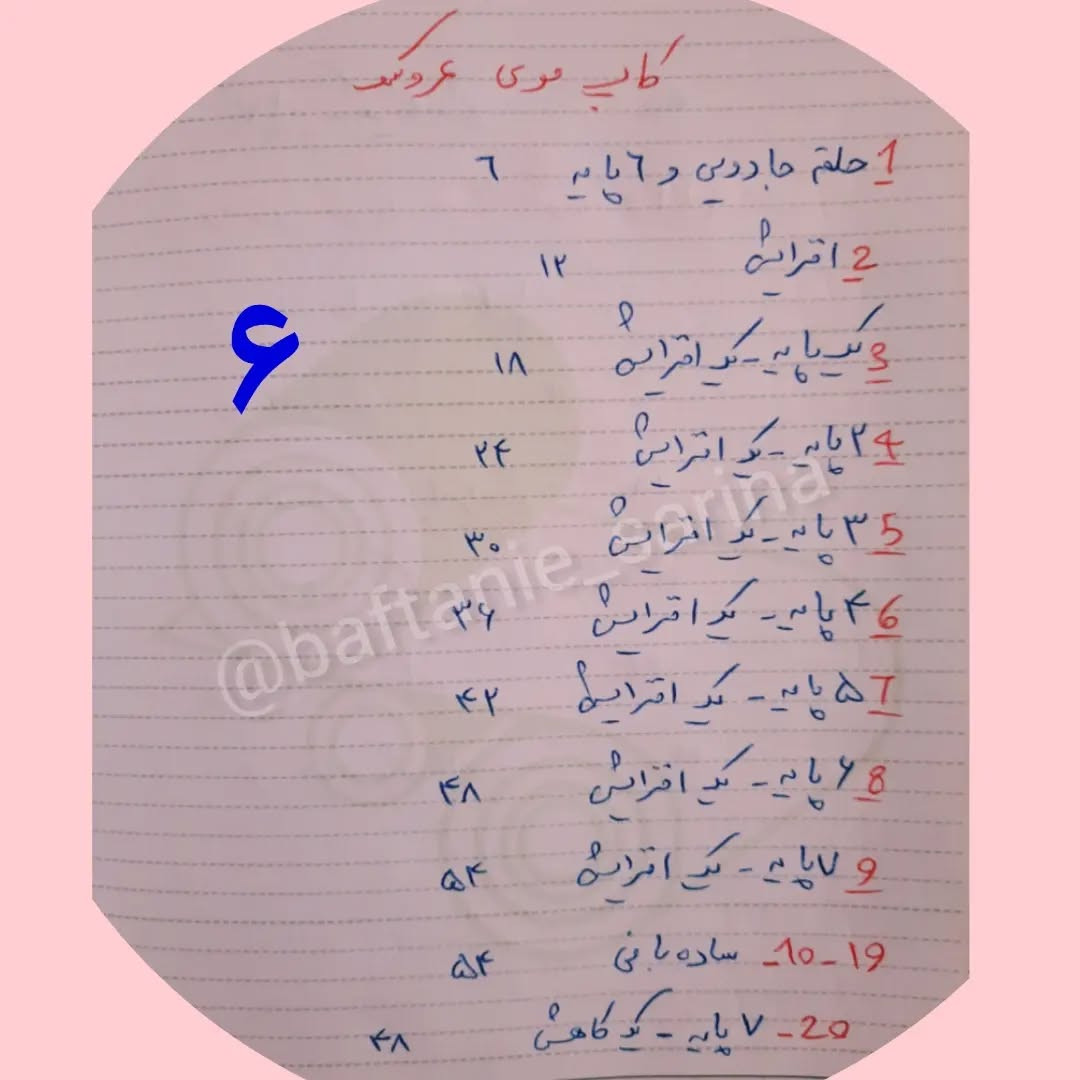 کاپ موی عروسک
1 حلقه جادویی و ٦ پایه ٦
2 افزایش ۱۲
3 یک پایه - یک افزایش ۱۸
4 ۲ پایه - یک افزایش ۲۴
5 ۳ پایه - یک افزایش ۳۰
6 ۴ پایه - یک افزایش ۳۶
7 ۵ پایه - یک افزایش ۴۲
8 ۶ پایه - یک افزایش ۴۸
9 ۷ پایه - یک افزایش ۵۴
10 - 19 - ساده بافی ۵۴
20 - ۷ پایه - یک کاهش ۴۸
۶
@baftanie_sarina